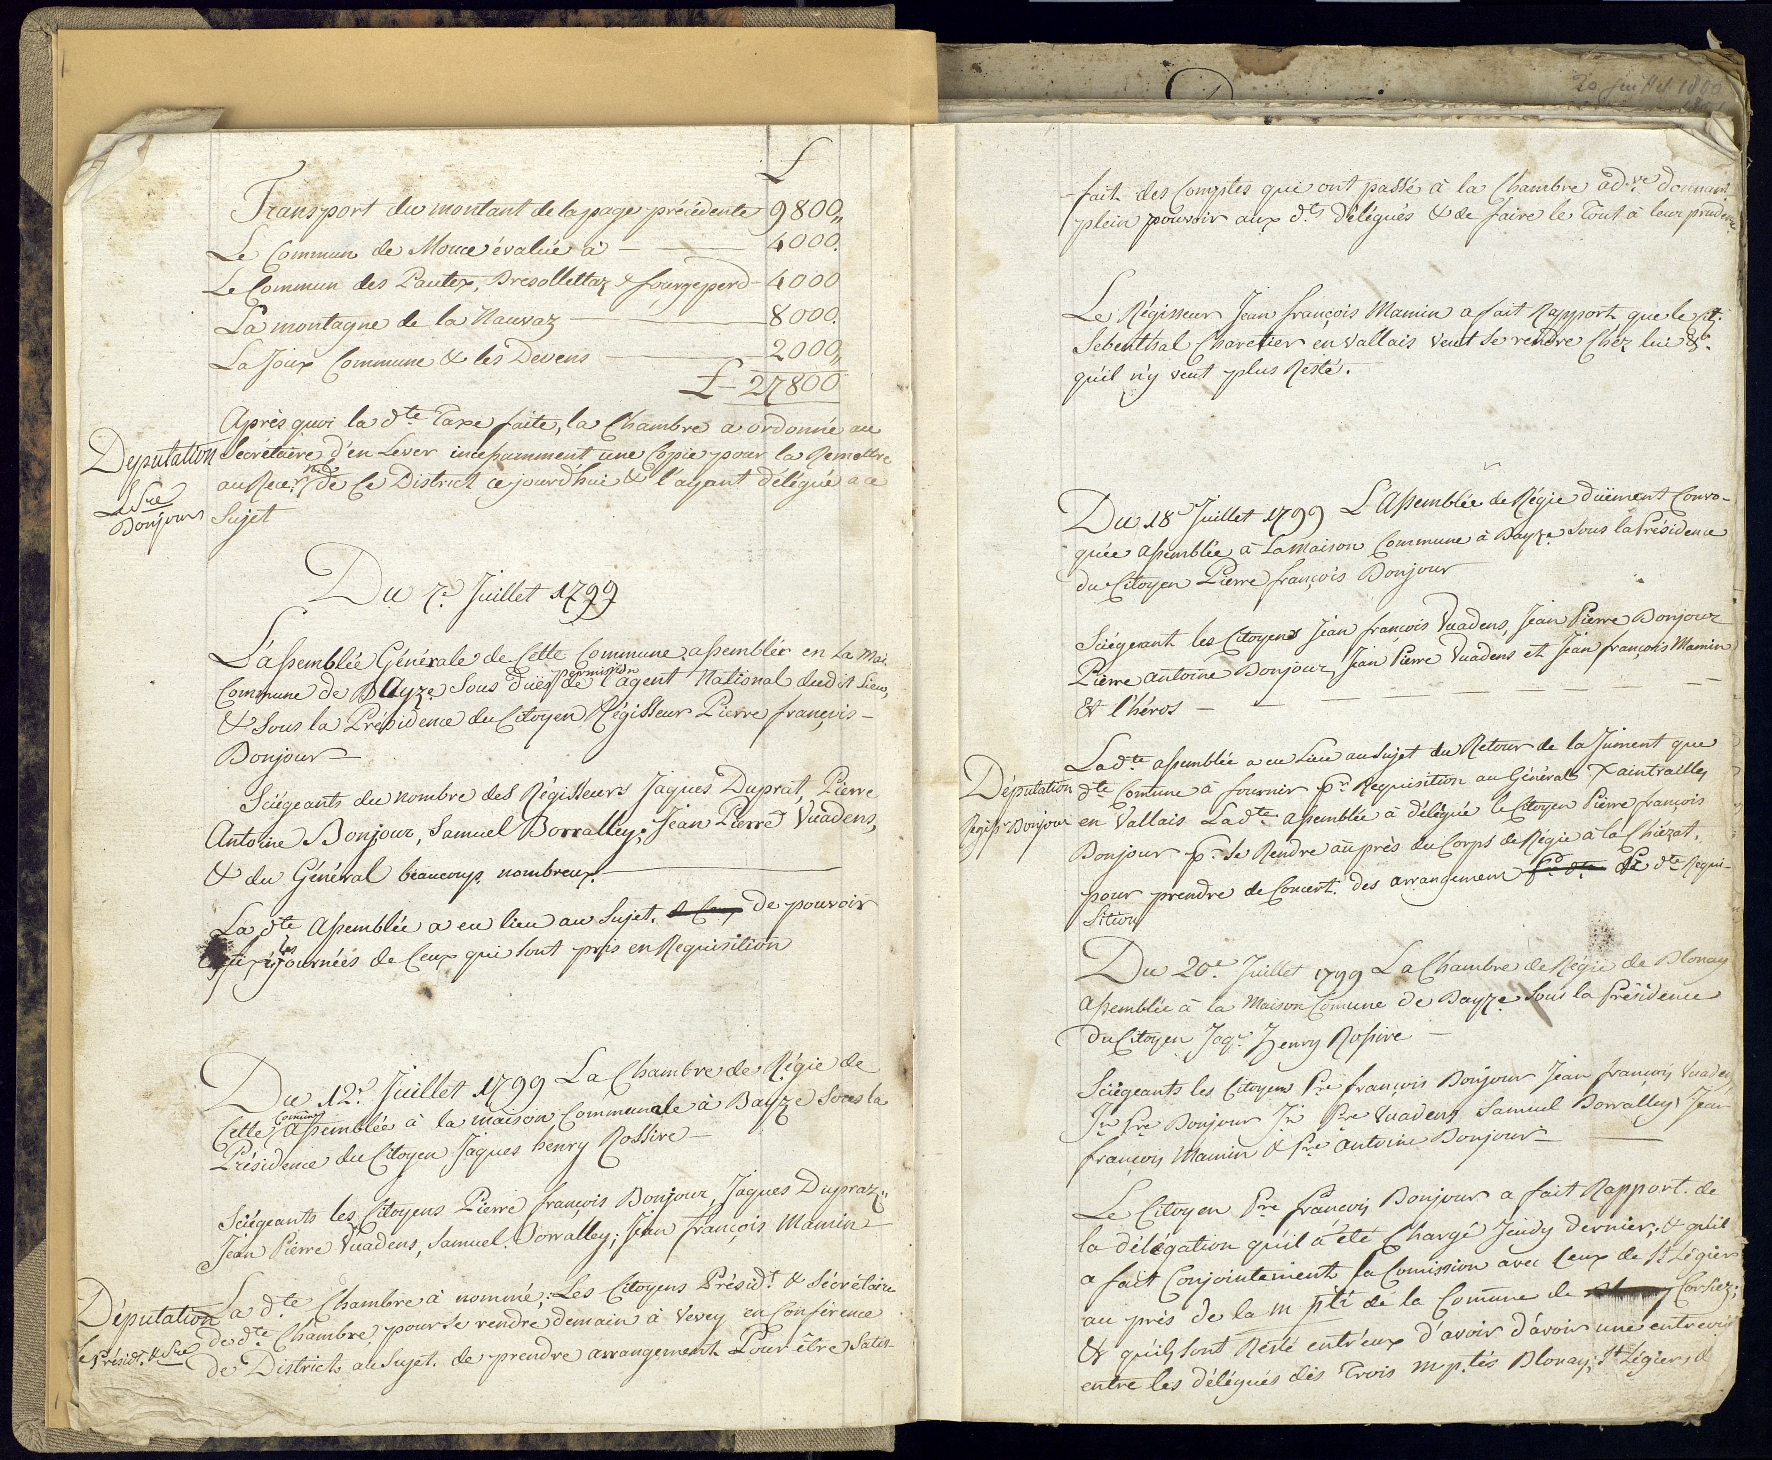 £
Transport du montant de la page précédente 9800,,
Le Commun de Mouce évalué à — 4000.
Le Commun des Pautex, Bresollettaz & fourgeperd — 4000
La montagne de la Nauvaz — 8000.
La Joux Commune & les Devens — 2000,,
£ 27800
Après quoi la dte Taxe faite, la Chambre a ordonné au
Deputation
Secrétaire d'en Lever incessamment une Copie pour la Remettre
au Rece.r de Ce District ce jourd'hui & l'ayant délégué a ce
Sujet
le Sre
Bonjour
Du 7.e Juillet 1799
L'assemblée Générale de Cette Commune assemblée en La Mai.
Commune de Bayze Sous dues permission de l'agent National dudit Lieu,
& Sous la Présidence du Citoyen Régisseur Pierre françois —
Bonjour —
Siégeants du nombre des Régisseurs Jaques Duprat, Pierre
Antoine Bonjour, Samuel Borralley; Jean Pierre Vuadens,
& du Général beaucoup nombreux. —
La dte Assemblée a eu lieu au Sujet. de pouvoir
les journées de Ceux qui sont pris en Requisition
Du 12.e Juillet 1799 La Chambre de Régie de
Cette Comune assemblée à la maison Communale à Bayze Sous la
Présidence du Citoyen Jaques henry Rossire —
Siégeants les Citoyens Pierre françois Bonjour, Jaques Dupraz,,
Jean Pierre Vuadens, Samuel Borralley; Jean françois Mamin —
Députation
le Présidt. & Sre
La dte Chambre à nommé; Les Citoyens Présidt. & Sécrétaire
de dte Chambre, pour se rendre demain à Vevey en Conférence
de District au Sujet. de prendre arrangement Pour être Satis-
20 Juillet 1800
fait des Comptes qui ont passé à la Chambre ad.ve donnant
plein pouvoir aux d.ts délégués & de faire le Tout à leur prudence
Le Régisseur Jean françois Mamin a fait Rapport que le
Sebenthal Charetier en Vallais Veut se rendre Chéz lui &
qu'il n'y veut plus Resté.
Du 18e Juillet 1799 L'Assemblée de Régie düement Convo-
quée assemblée à La maison Commune à Bayze Sous la Présidence
du Citoyen Pierre françois Bonjour
Siégeant les Citoyens Jean françois Vuadens, Jean Pierre Bonjour
Pierre antoine Bonjour, Jean Pierre Vuadens et Jean françois Mamin
& l'héros —
La dte assemblée a eu Lieu au Sujet du Retour de la Jument que
Députation
Regissr. Bonjour
dte Comune à fournir pr. Requisition au Général Xaintrailles
en Vallais La dte assemblée à délégué le Citoyen Pierre françois
Bonjour pr. se Rendre au près du Corps de Régie à la Chiézat,
pour prendre de Concert. des arrangement de dte Requi-
Sition
Du 20e Juillet 1799 La Chambre de Régie de Blonay
Assemblée à la Maison Comune de Bayze Sous la Présidence
du Citoyen Jaq.e Henry Rossire —
Siégeants les Citoyens Pre françois Bonjour Jean françois Vuadens
Jn Pre Bonjour Jn Pre Vuadens Samuel Borralley, Jean
françois Mamin & Pre antoine Bonjour —
Le Citoyen Pre françois Bonjour a fait Rapport. de
la délégation qu'il à été Chargé Jeudy dernier; & qu'il
a fait Conjointement sa Comission avec Ceux de St Légier
au près de la mplté de la Comune de Corsiez;
& qu'ils sont Resté entr'eux d'avoir d'avoir une entrevue
entre les délégués des Trois mp.tés Blonay; St Légier, &